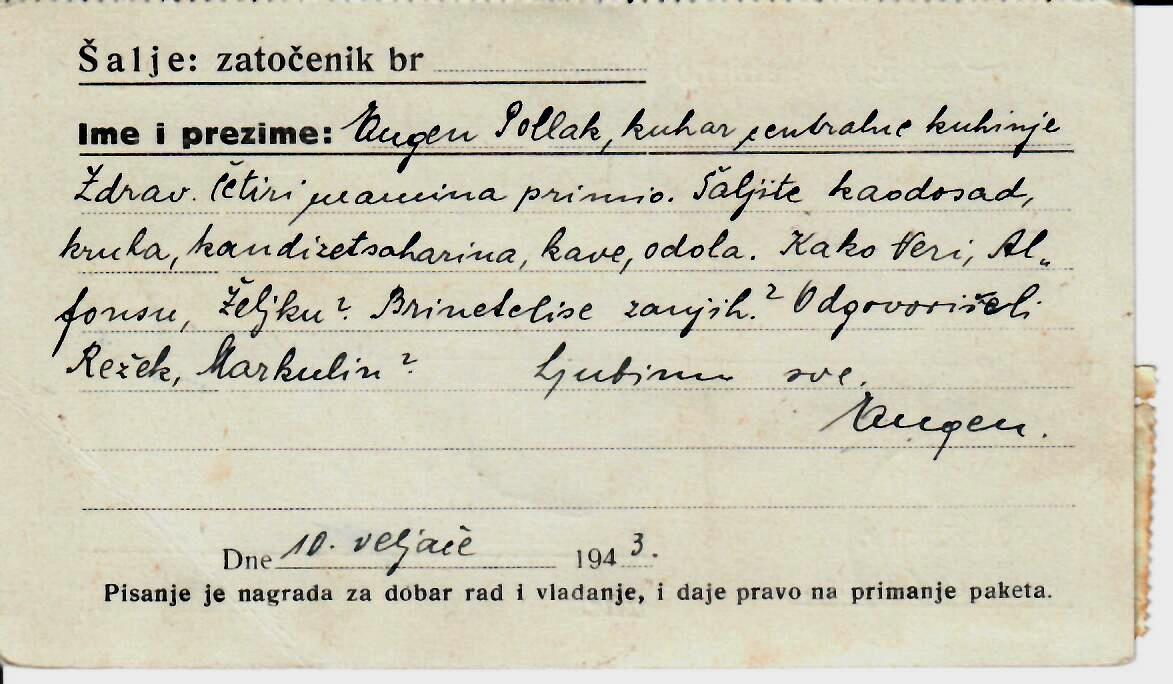 Šalje: zatočenik br
Ime i prezime: Eugen Pollak, kuhar centralne kuhinje
Zdrav. Četiri mamina primio. Šaljite kaodosad,
kruha, kandizetsaharina, kave, odola. Kako Veri, Al„
fonsu, Željku? Brinetelise zanjih? Odgovorišeli
Režek, Markulin? Ljubimu sve.
Eugen.
Dne 10. veljače 1943.
Pisanje je nagrada za dobar rad i vladanje, i daje pravo na primanje paketa.